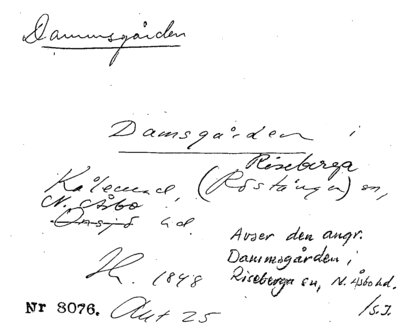 Dammsgården
Damsgården i
Riseberga
Kålemad, (Röstånga) sn,
N. Åsbo
Onsjö hd.
Avser den angr.
Dammsgården i
H. 1848
Riseberga sn, N. Åsbo hd.
Nr 8076. Akt 25
/S.J.